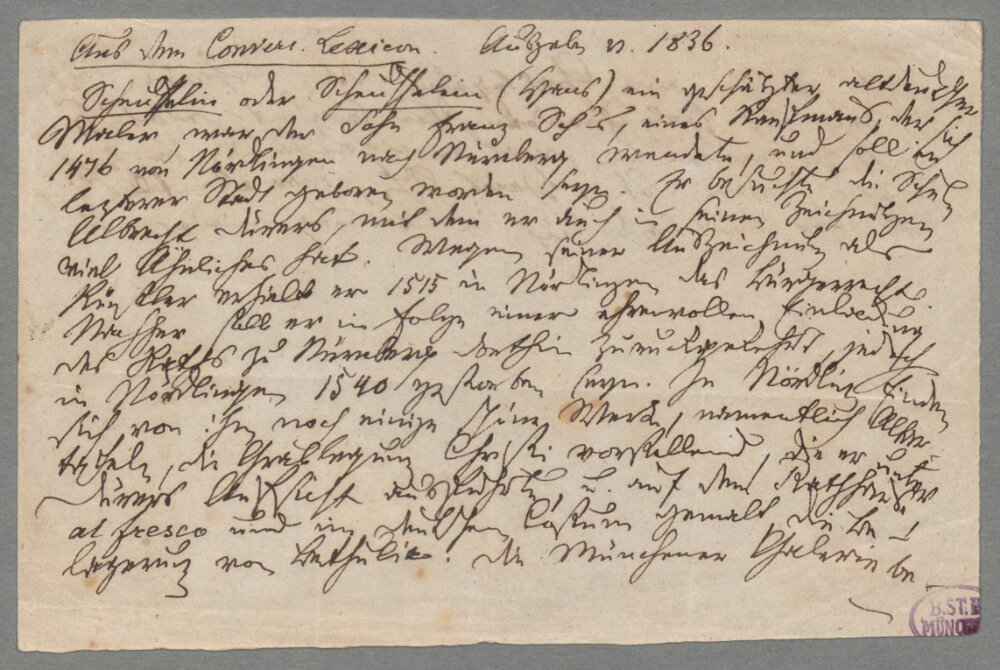 Aus dem Convers. Lexicon. Ausgabe v. 1836.
Scheuffelin oder Scheuffelein (Hans) ein geschätzter altdeutscher
Maler, war der Sohn Franz Sch's, eines Kaufmanns, der sich
1476 von Nördlingen nach Nürnberg wendete, und soll in
letzterer Stadt geboren worden seyn. Er besuchte die Schule
Albrecht Dürers, mit dem er auch in seinen Zeichnungen
viel Ähnliches hat. Wegen seiner Auszeichnung als
Künstler erhielt er 1515 in Nördlingen das Bürgerrecht.
Nachher soll er in Folge einer ehrenvollen Einladung
des Raths zu Nürnberg dorthin zurückgekehrt, jedoch
in Nördlingen 1540 gestorben seyn. In Nördling finden
sich von ihm noch einige schöne Werke, namentlich Altar-
tafeln, die Grablegung Christi vorstellend, die er unter
Dürers Aufsicht ausführte, u. auf dem Rathhause
al fresco und im deutschen Costum gemalt, die Be-
lagerung von Bethulie. die Münchener Galerie be
B.ST.B
MÜNCHEN